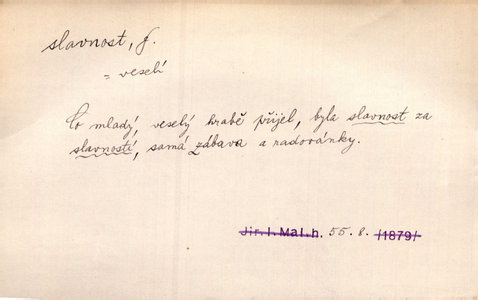 slavnost, f.
= veselí
Co mladý, veselý hrabě přijel, byla slavnost za
slavností, samá zábava a radovánky.
Jir. I. Mal. h. 55. 8. /1879/